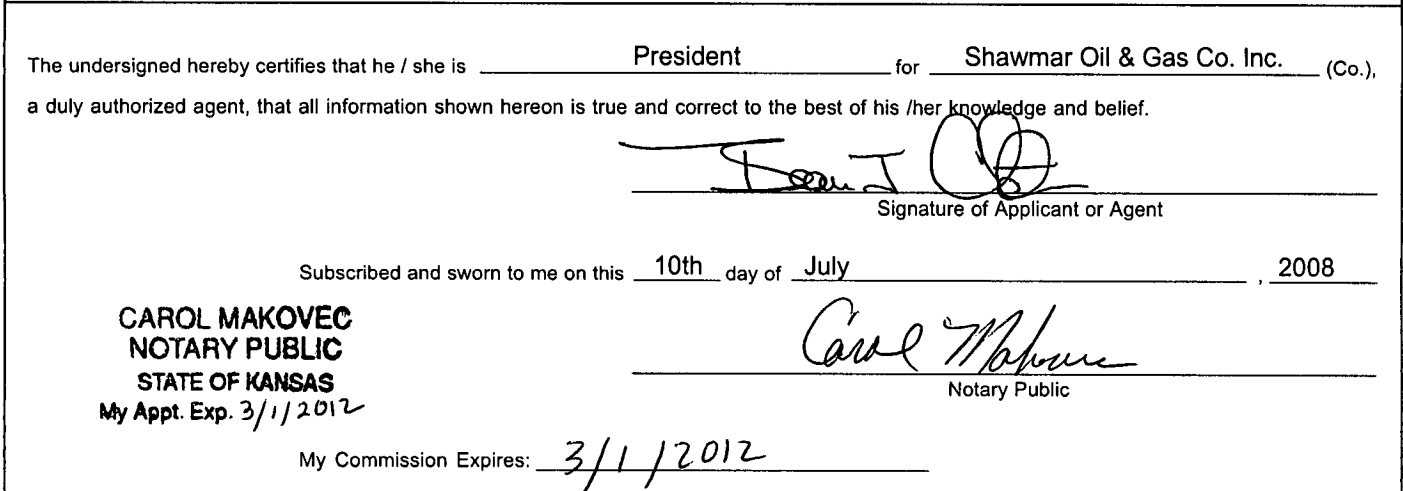 The undersigned hereby certifies that he / she is President for Shawmar Oil & Gas Co. Inc. (Co.),
a duly authorized agent, that all information shown hereon is true and correct to the best of his /her knowledge and belief.
J
Signature of Applicant or Agent
Subscribed and sworn to me on this 10th day of July , 2008
CAROL MAKOVEC
NOTARY PUBLIC
STATE OF KANSAS
My Appt. Exp. 3/1/2012
Carol Makovec
Notary Public
My Commission Expires: 3/1/2012